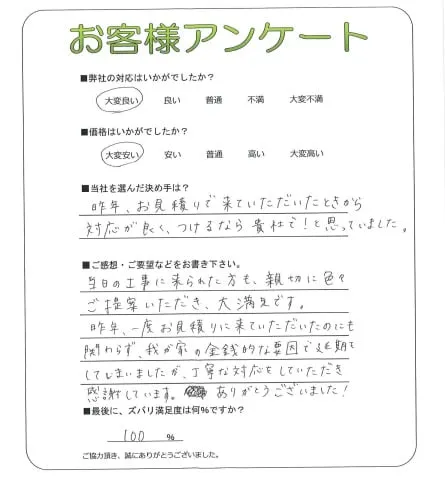 お客様アンケート
■弊社の対応はいかがでしたか？
大変良い 良い 普通 不満 大変不満
■価格はいかがでしたか？
大変安い 安い 普通 高い 大変高い
■当社を選んだ決め手は？
昨年、お見積りで来ていただいたときから
対応が良く、つけるなら貴社で！と思っていました。
■ご感想・ご要望などをお書き下さい。
当日の工事に来られた方も、親切に色々
ご提案いただき、大満足です。
昨年、一度お見積りに来ていただいたのにも
関わらず、我が家の金銭的な要因で延期を
してしまいましたが、丁寧な対応をしていただき
感謝しています。ありがとうございました！
■最後に、ズバリ満足度は何％ですか？
100 %
ご協力頂き、誠にありがとうございました。